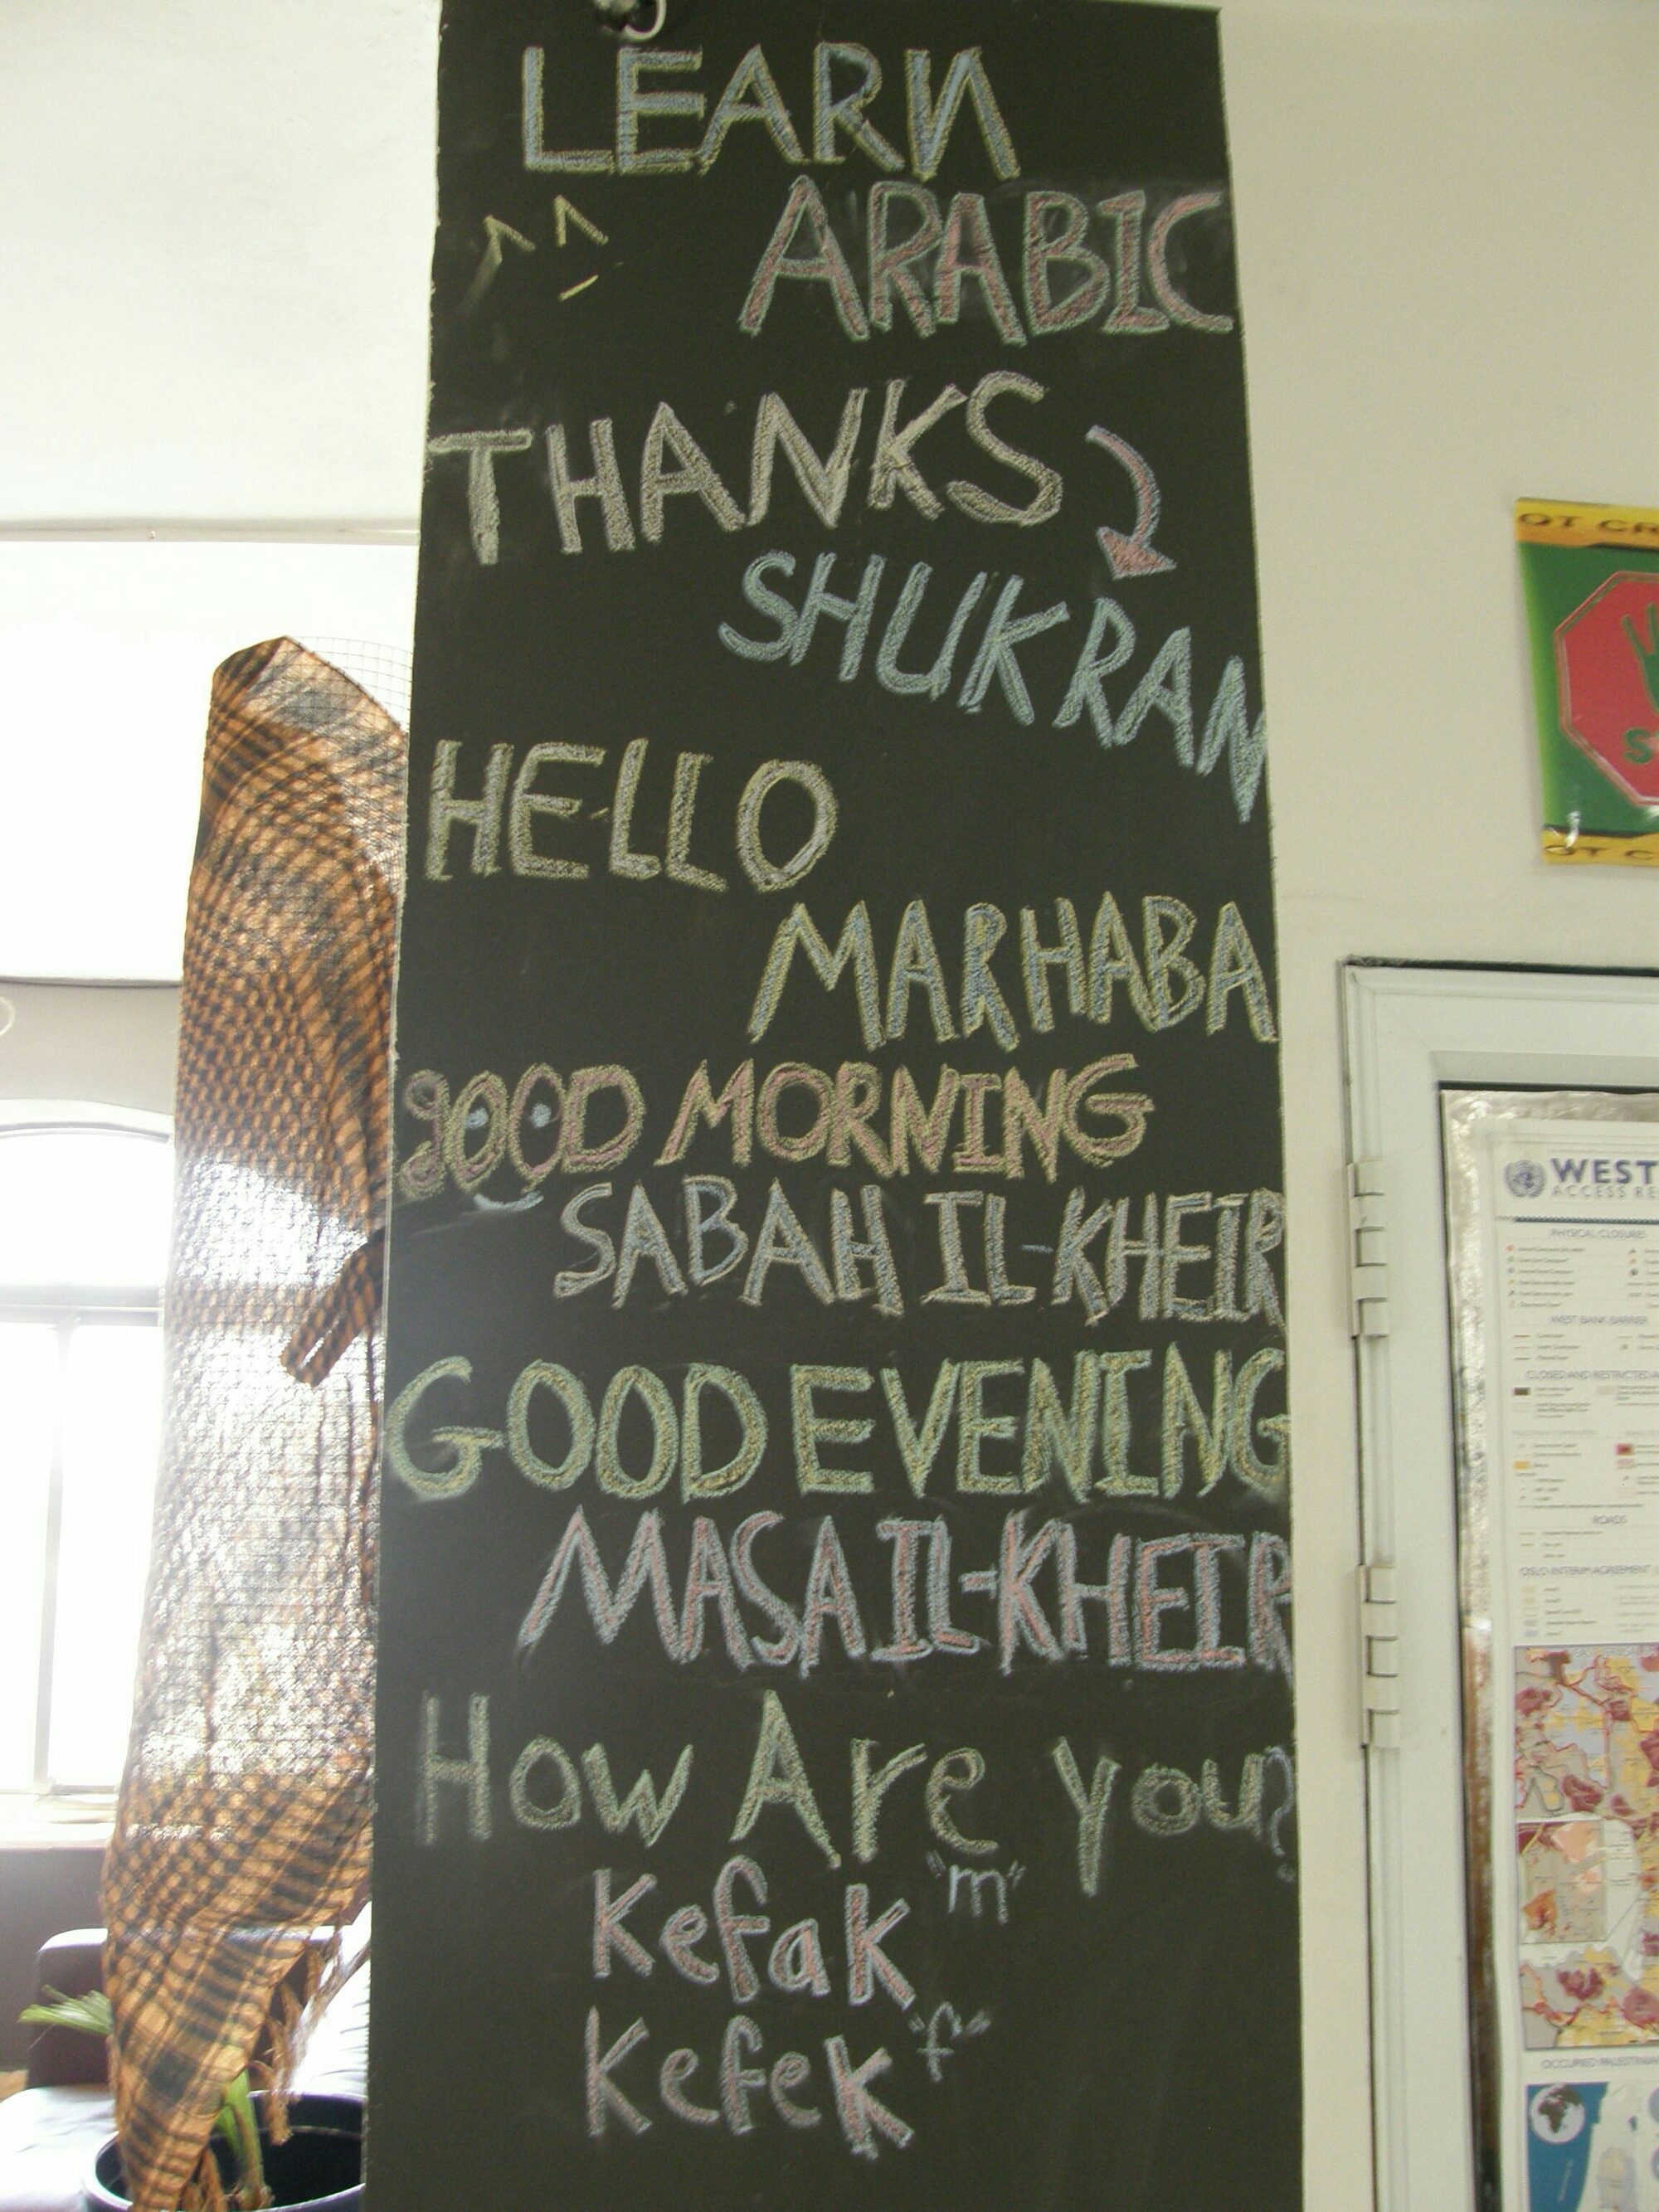 LEARN
ARABIC
THANKS
SHUKRAN
HELLO
MARHABA
gOOD MORNING
SABAH IL-KHEIR
GOOD EVENING
MASA IL-KHEIR
How Are you?
Kefak "m"
Kefek "f"
OT CR
OT C
WEST
ACCESS RE
PHYSICAL CLOSURES
WEST BANK BARRIER
CLOSED AND RESTRICTED A
ROADS
OSLO INTERIM AGREEMENT
OCCUPIED PALESTINIA